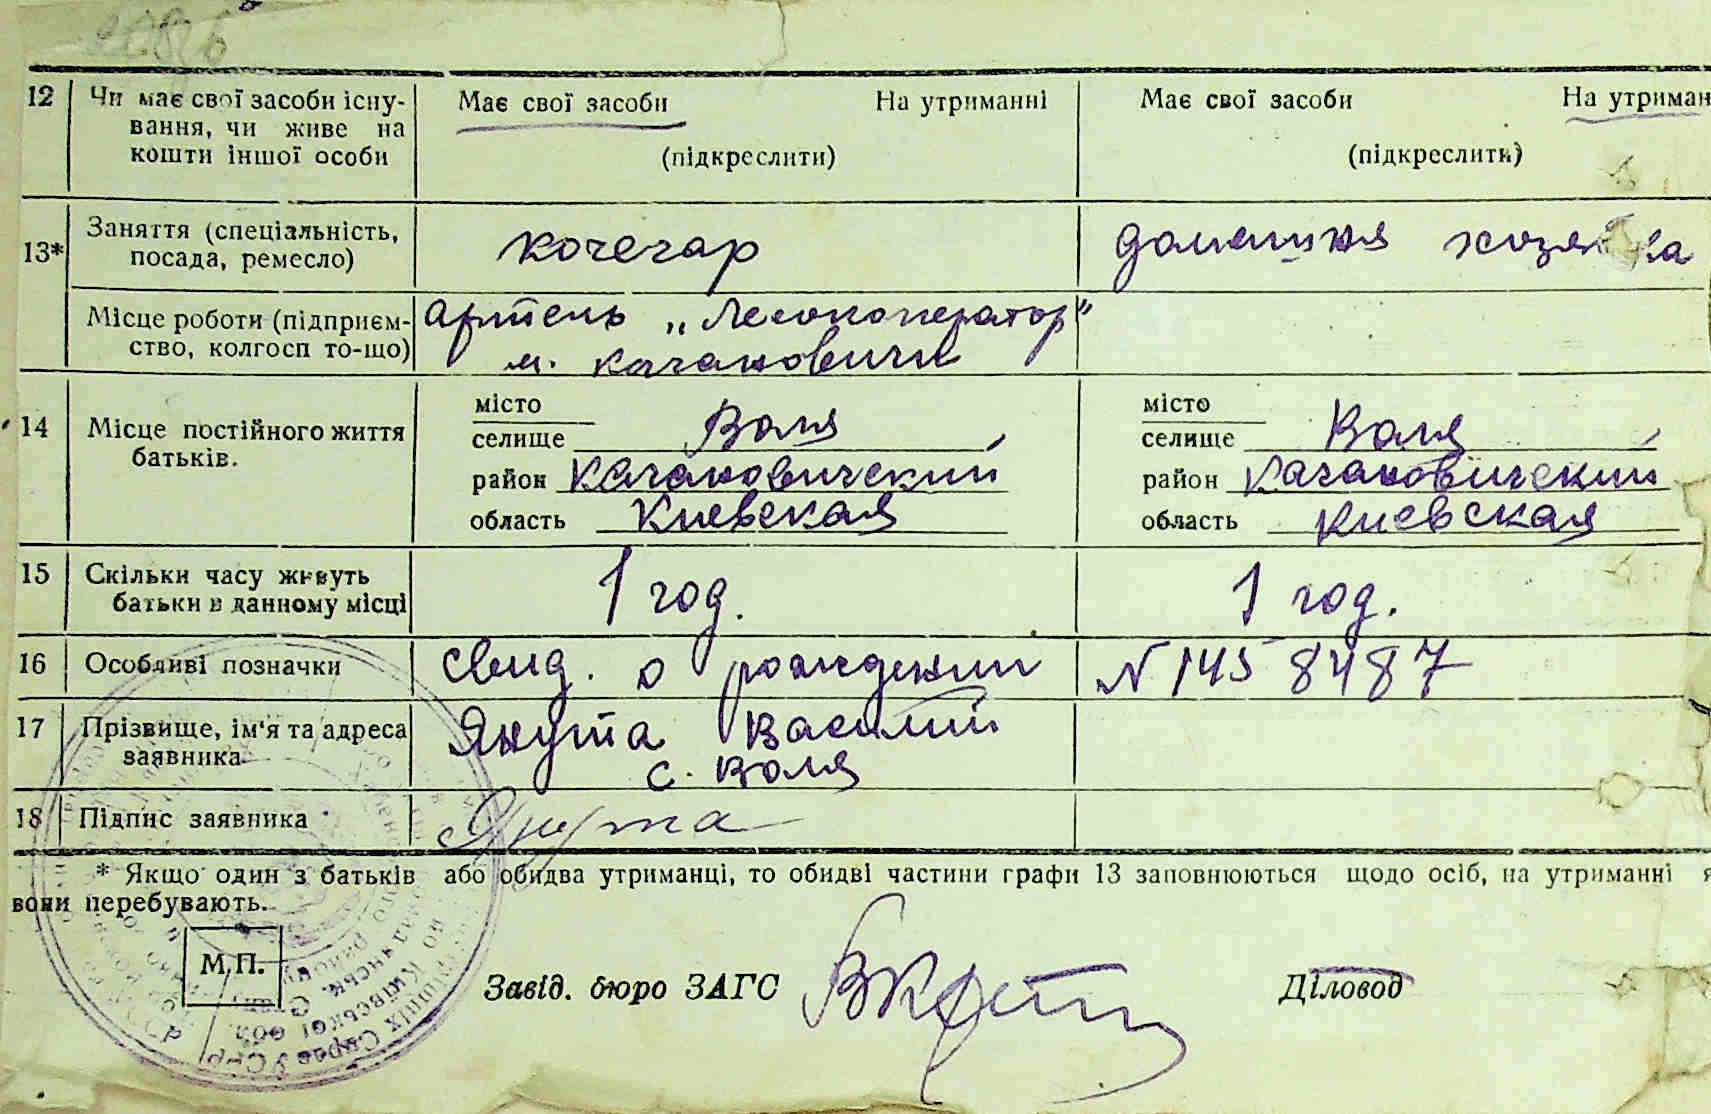 12 Чи має свої засоби існу- Має свої засоби На утриманні Має свої засоби На утриман
вання, чи живе на
кошти іншої особи (підкреслити) (підкреслити)
13* Заняття (спеціальність, кочегар домашняя хозяйка
посада, ремесло)
Місце роботи (підприєм- Артель „Лесокооператор"
ство, колгосп то-що) м. Кагановичи
14 Місце постійного життя місто місто
батьків. селище Воля селище Воля
район Кагановичский район Кагановичский
область Киевская область Киевская
15 Скільки часу живуть 1 год. 1 год.
батьки в данному місці
16 Особливі позначки Свид. о рождении N 1458487
17 Прізвище, ім'я та адреса Якута Василий
заявника с. Воля
18 Підпис заявника Якута
* Якщо один з батьків або обидва утриманці, то обидві частини графи 13 заповнюються щодо осіб, на утриманні я
вони перебувають.
М.П.
Завід. бюро ЗАГС Діловод